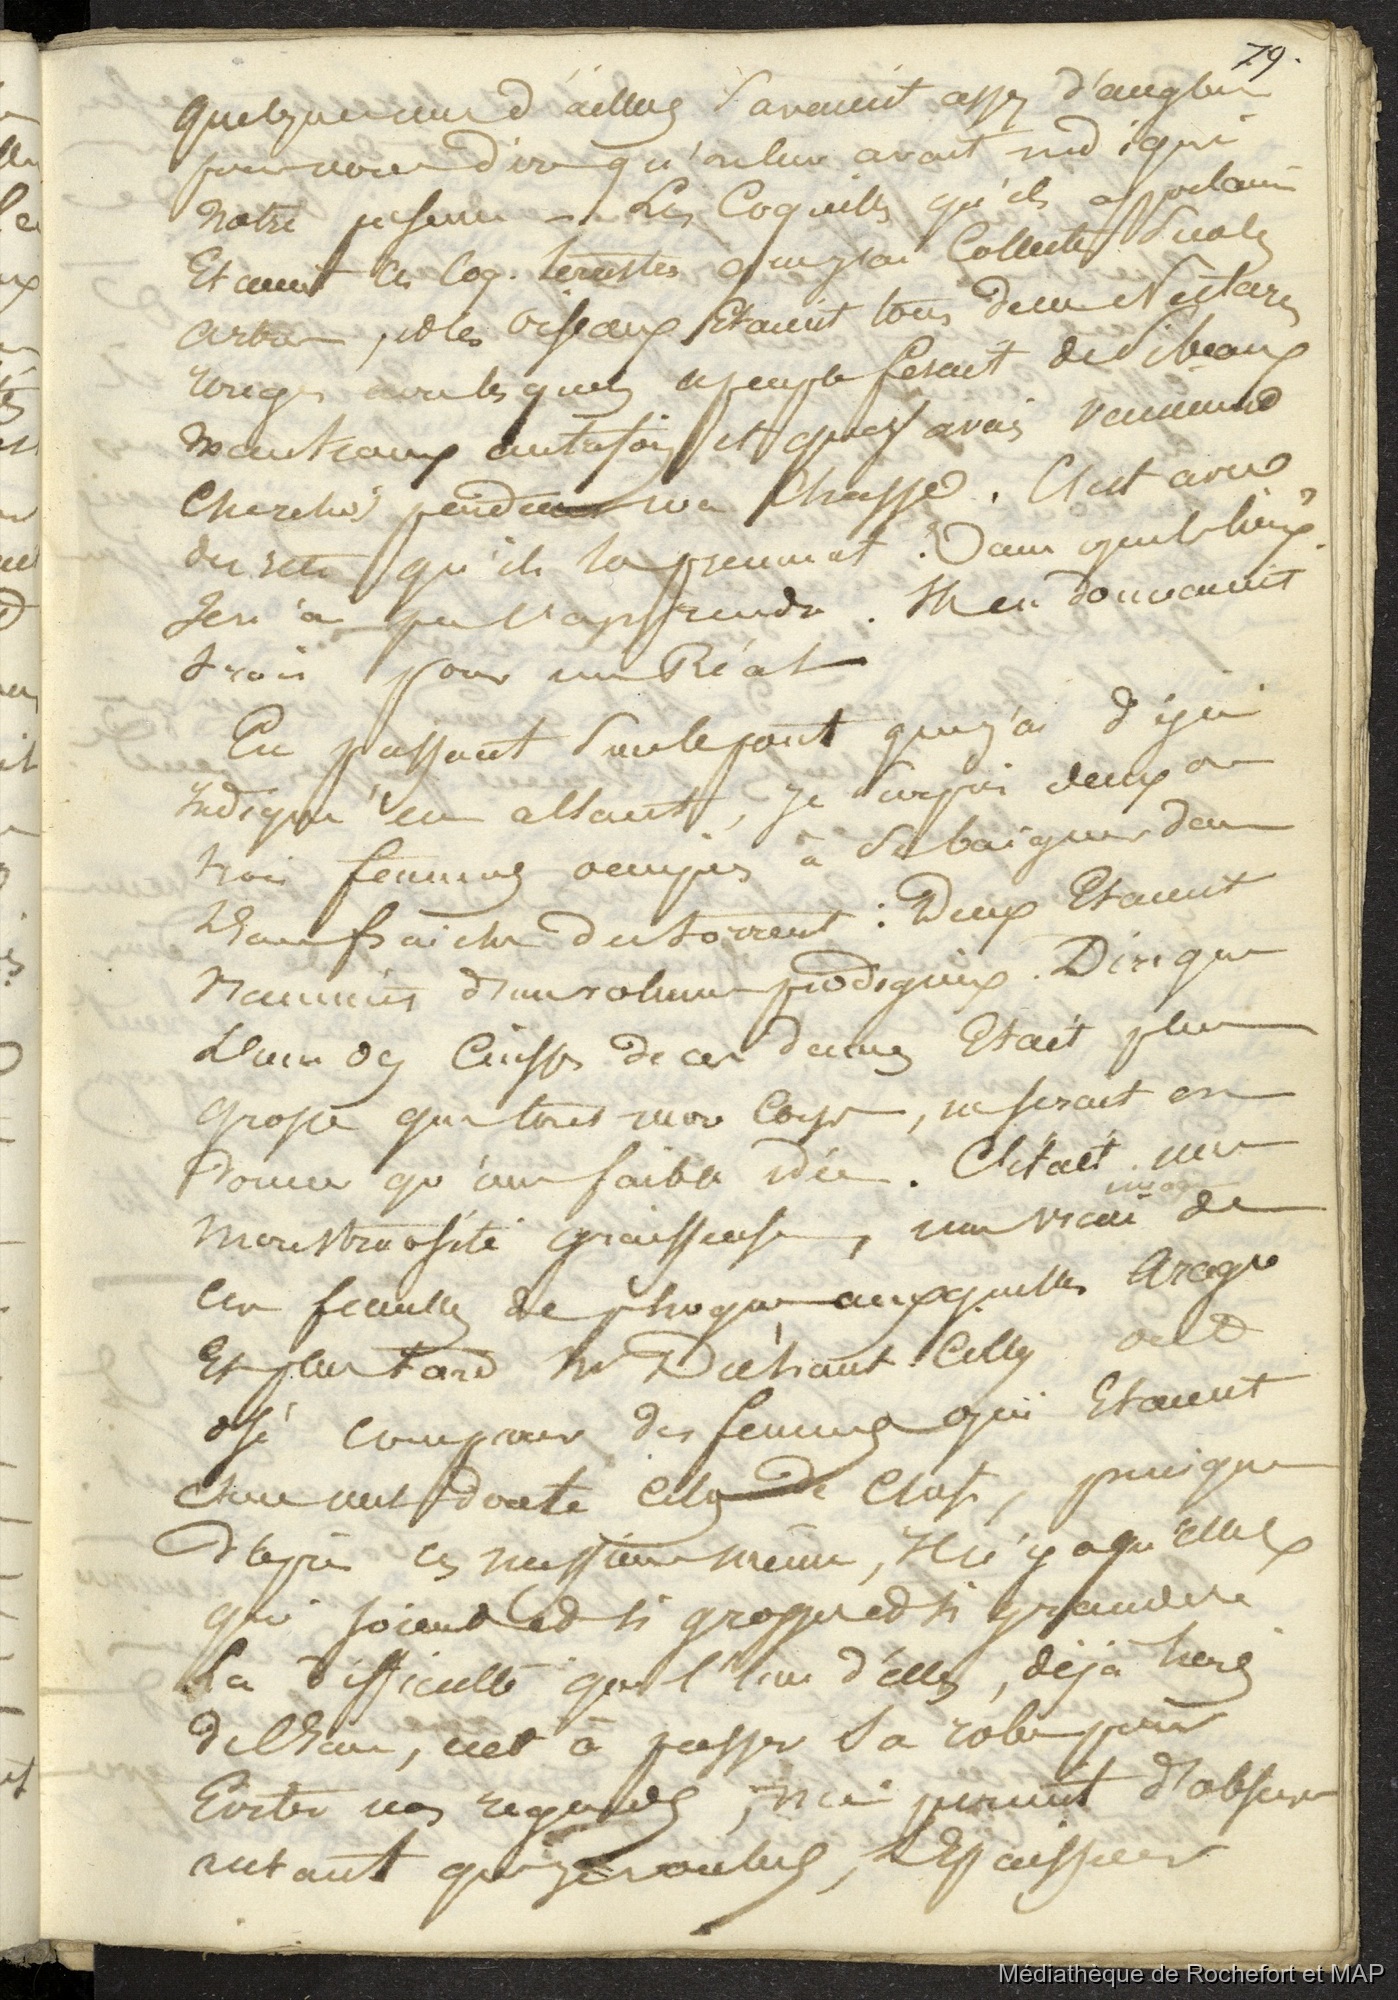 79.
quelques uns d'ailleurs savaient assez d'anglais
pour nous dire qu'on leur avait indiqué
notre présence — Les Coquilles qu'ils apportaient
Etaient les Coq. terrestres que j'ai Collectées sur les
arbres, et les oiseaux Etaient tous deux Nectars
rouges avec lesquels ce peuple fesait de si beaux
manteaux autrefois et que j'avais vainement
Cherchés pendant ma chasse. C'est avec
des rets qu'ils les prennent. Dans quels lieux?
Je n'ai pu l'apprendre. Ils en donnaient
trois pour un Réal

En passant sur le pont que j'ai déjà
indiqué en allant, je surpris deux ou
trois femmes occupées à se baigner dans
l'eau fraiche du torrent : Deux Etaient
d'un volume prodigieux. Dire que
l'une des Cuisses de ces dames Etait plus
grosse que tout mon Corps, ne serait en
donner qu'une faible idée. C'était une
monstruosité graisseuse, une vraie image de
ces femelles de phoques auxquelles Arago
Et plus tard Mr Duhaut-Cilly ont
osé comparer des femmes qui Etaient
sans nul doute celles de Chefs, puisque
d'après ces messieurs même, Il n'y a qu'elles
qui soient et si grosses et si grandes.
La difficulté que l'une d'elles, déjà hors
de l'Eau, eut à passer sa robe pour
Eviter nos regards, me permit d'observer
autant que je voulus, l'Epaisseur
Médiathèque de Rochefort et MAP